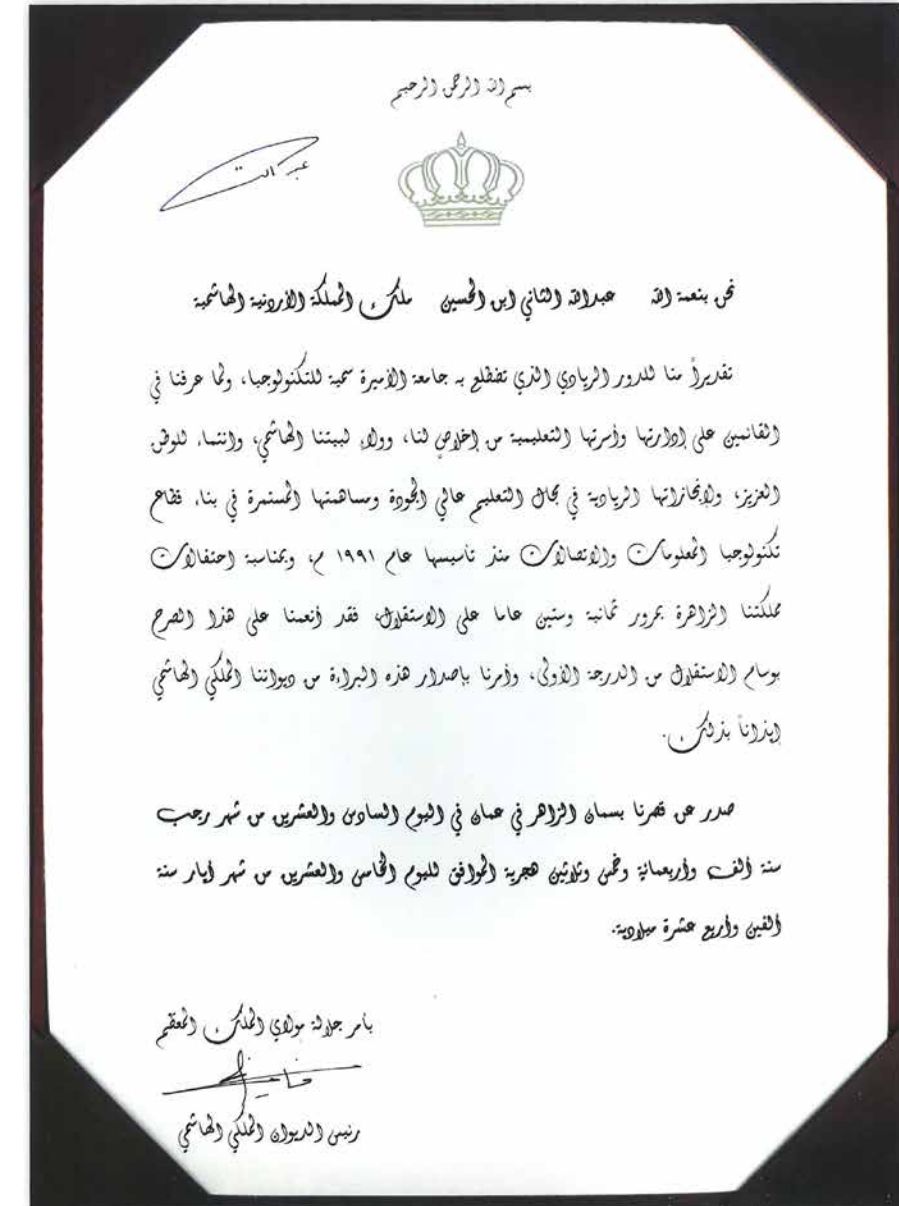 بسم الله الرحمن الرحيم
عبد الله
نحن بنعمة الله عبدالله الثاني ابن الحسين ملك المملكة الأردنية الهاشمية
تقديراً منا للدور الريادي الذي تضطلع به جامعة الأميرة سمية للتكنولوجيا، ولما عرفنا في
القائمين على إدارتها وأسرتها التعليمية من إخلاصٍ لنا، وولاء لبيتنا الهاشمي، وانتماء للوطن
العزيز، ولإنجازاتها الريادية في مجال التعليم عالي الجودة ومساهمتها المستمرة في بناء قطاع
تكنولوجيا المعلومات والاتصالات منذ تأسيسها عام ١٩٩١ م، وبمناسبة احتفالات
مملكتنا الزاهرة بمرور ثمانية وستين عاما على الاستقلال، فقد أنعمنا على هذا الصرح
بوسام الاستقلال من الدرجة الأولى، وأمرنا بإصدار هذه البراءة من ديواننا الملكي الهاشمي
إيذاناً بذلك.
صدر عن قصرنا بسمان الزاهر في عمان في اليوم السادس والعشرين من شهر رجب
سنة ألف وأربعمائة وخمس وثلاثين هجرية الموافق لليوم الخامس والعشرين من شهر أيار سنة
ألفين وأربع عشرة ميلادية.
بأمر جلالة مولاي الملك المعظم
رئيس الديوان الملكي الهاشمي